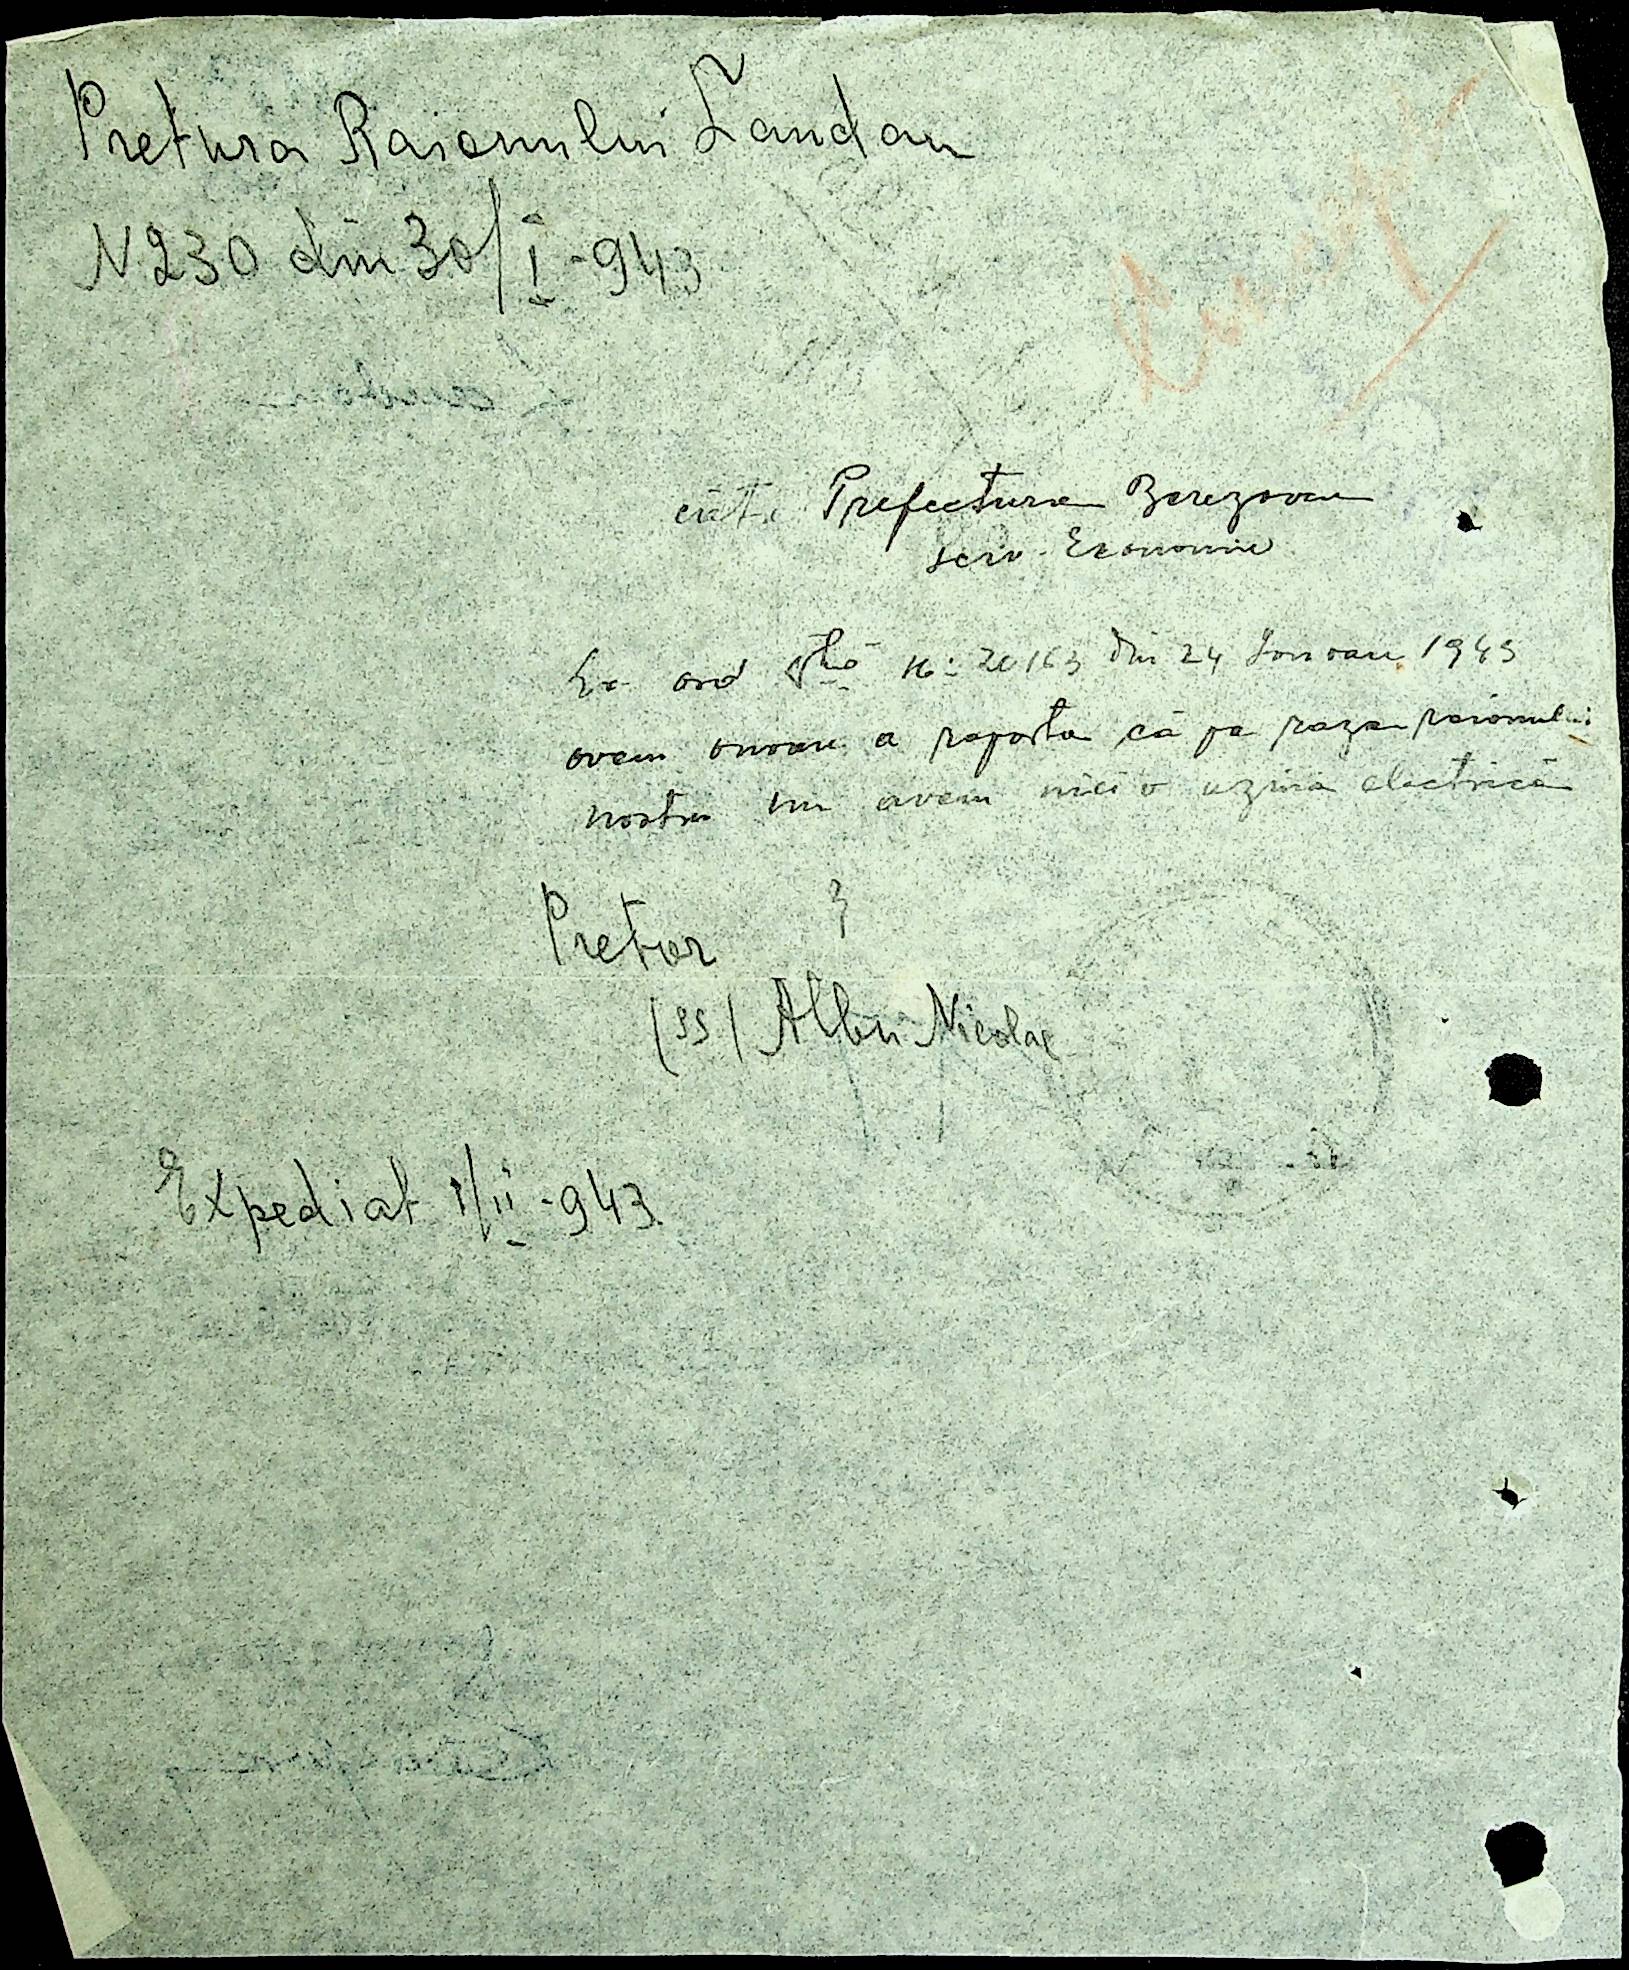 Pretura Raionului Landau
N 230 din 30/I-943
Concept
către Prefectura Berezovca
serv. Economic
La ord Nr: 20163 din 24 Ianuarie 1943
avem onoare a raporta că pe raza raionului
nostru nu avem nici o uzina electrică
Pretor
(ss) Albu Nicolae
Expediat 1/II-943